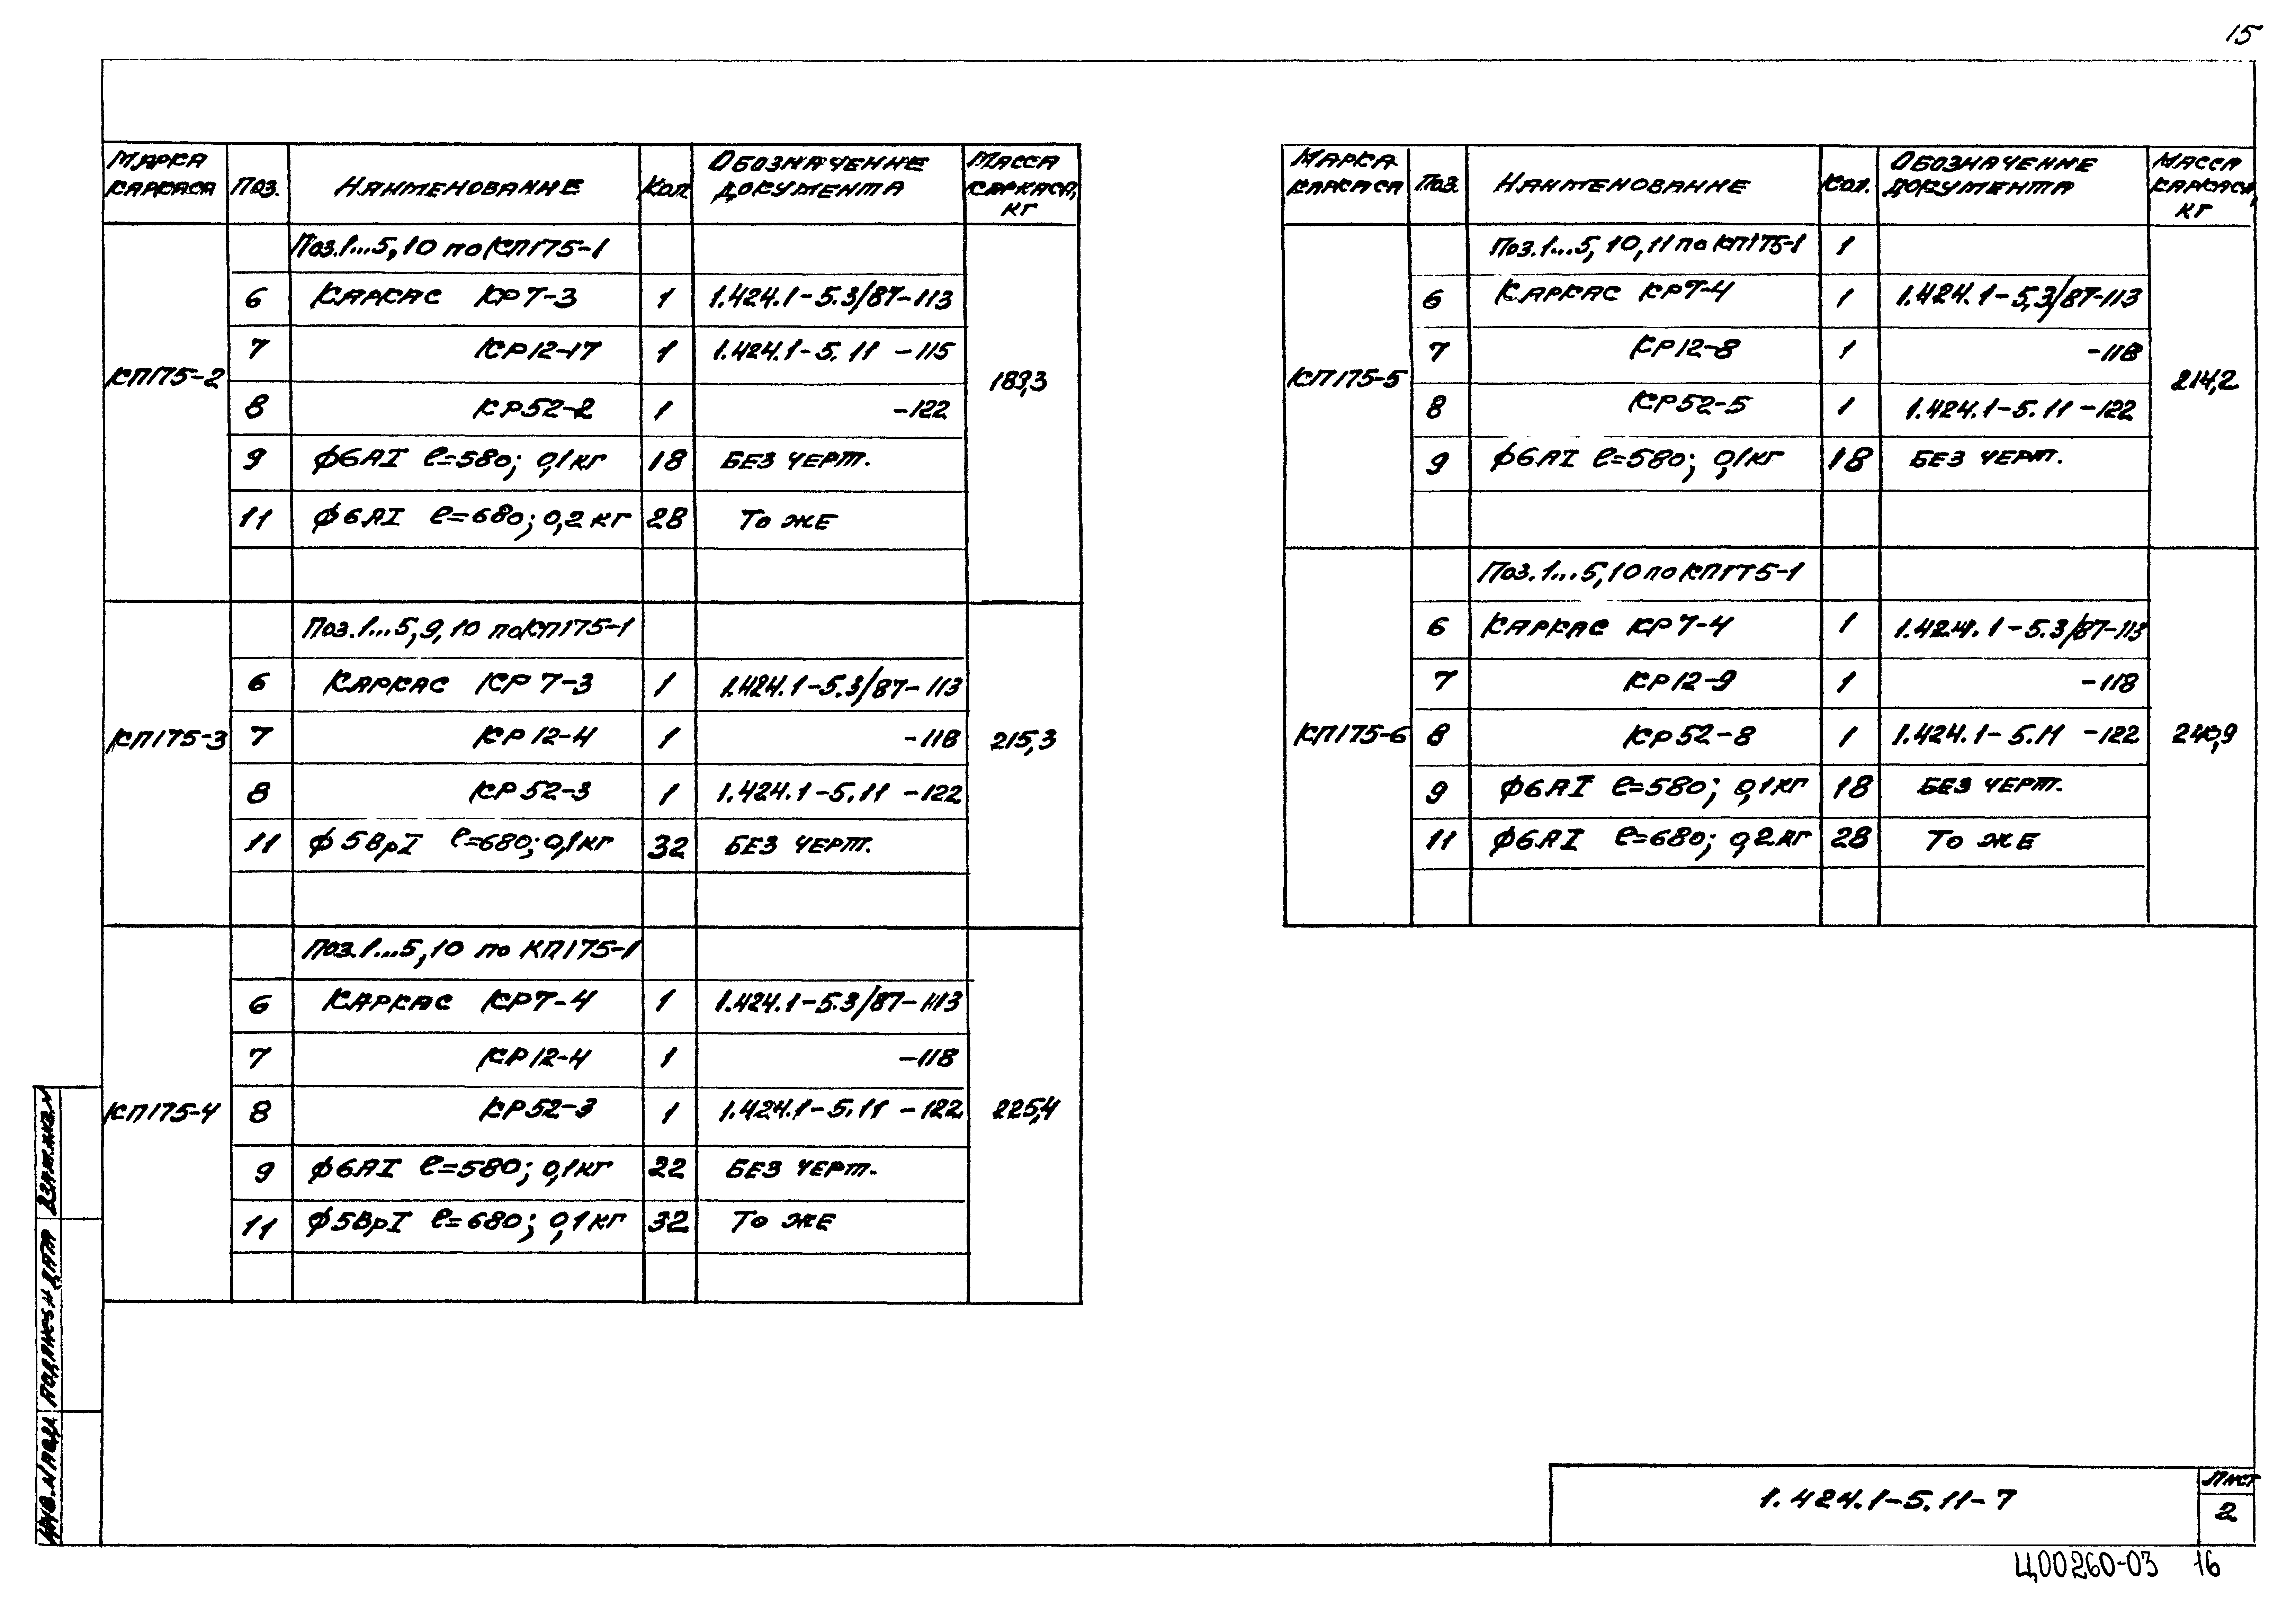 15
МАРКА КАРКАСА ПОЗ. НАИМЕНОВАНИЕ КОЛ. ОБОЗНАЧЕНИЕ ДОКУМЕНТА МАССА КАРКАСА, КГ
ПОЗ. 1...5, 10 ПО КП175-1
6 КАРКАС КР7-3 1 1.424.1-5.3/87-113
7 КР12-17 1 1.424.1-5.11 -115
КП175-2 189,3
8 КР52-2 1 -122
9 ϕ6АI ℓ=580; 0,1кг 18 БЕЗ ЧЕРТ.
11 ϕ6АI ℓ=680; 0,2кг 28 ТО ЖЕ
ПОЗ. 1...5, 9, 10 ПО КП175-1
6 КАРКАС КР7-3 1 1.424.1-5.3/87-113
КП175-3 7 КР12-4 1 -118 215,3
8 КР52-3 1 1.424.1-5.11 -122
11 ϕ5ВрI ℓ=680; 0,1кг 32 БЕЗ ЧЕРТ.
ПОЗ. 1...5, 10 ПО КП175-1
6 КАРКАС КР7-4 1 1.424.1-5.3/87-113
7 КР12-4 1 -118
КП175-4 8 КР52-3 1 1.424.1-5.11 -122 225,4
9 ϕ6АI ℓ=580; 0,1кг 22 БЕЗ ЧЕРТ.
11 ϕ5ВрI ℓ=680; 0,1кг 32 ТО ЖЕ
МАРКА КАРКАСА ПОЗ. НАИМЕНОВАНИЕ КОЛ. ОБОЗНАЧЕНИЕ ДОКУМЕНТА МАССА КАРКАСА, КГ
ПОЗ. 1...5, 10, 11 ПО КП175-1 1
6 КАРКАС КР7-4 1 1.424.1-5.3/87-113
7 КР12-8 1 -118
КП175-5 214,2
8 КР52-5 1 1.424.1-5.11 -122
9 ϕ6АI ℓ=580; 0,1кг 18 БЕЗ ЧЕРТ.
ПОЗ. 1...5, 10 ПО КП175-1
6 КАРКАС КР7-4 1 1.424.1-5.3/87-113
7 КР12-9 1 -118
КП175-6 8 КР52-8 1 1.424.1-5.11 -122 240,9
9 ϕ6АI ℓ=580; 0,1кг 18 БЕЗ ЧЕРТ.
11 ϕ6АI ℓ=680; 0,2кг 28 ТО ЖЕ
ИНВ. N ПОДЛ. ПОДПИСЬ И ДАТА ВЗАМ. ИНВ. N
1.424.1-5.11-7
ЛИСТ
2
Ц00260-03 16